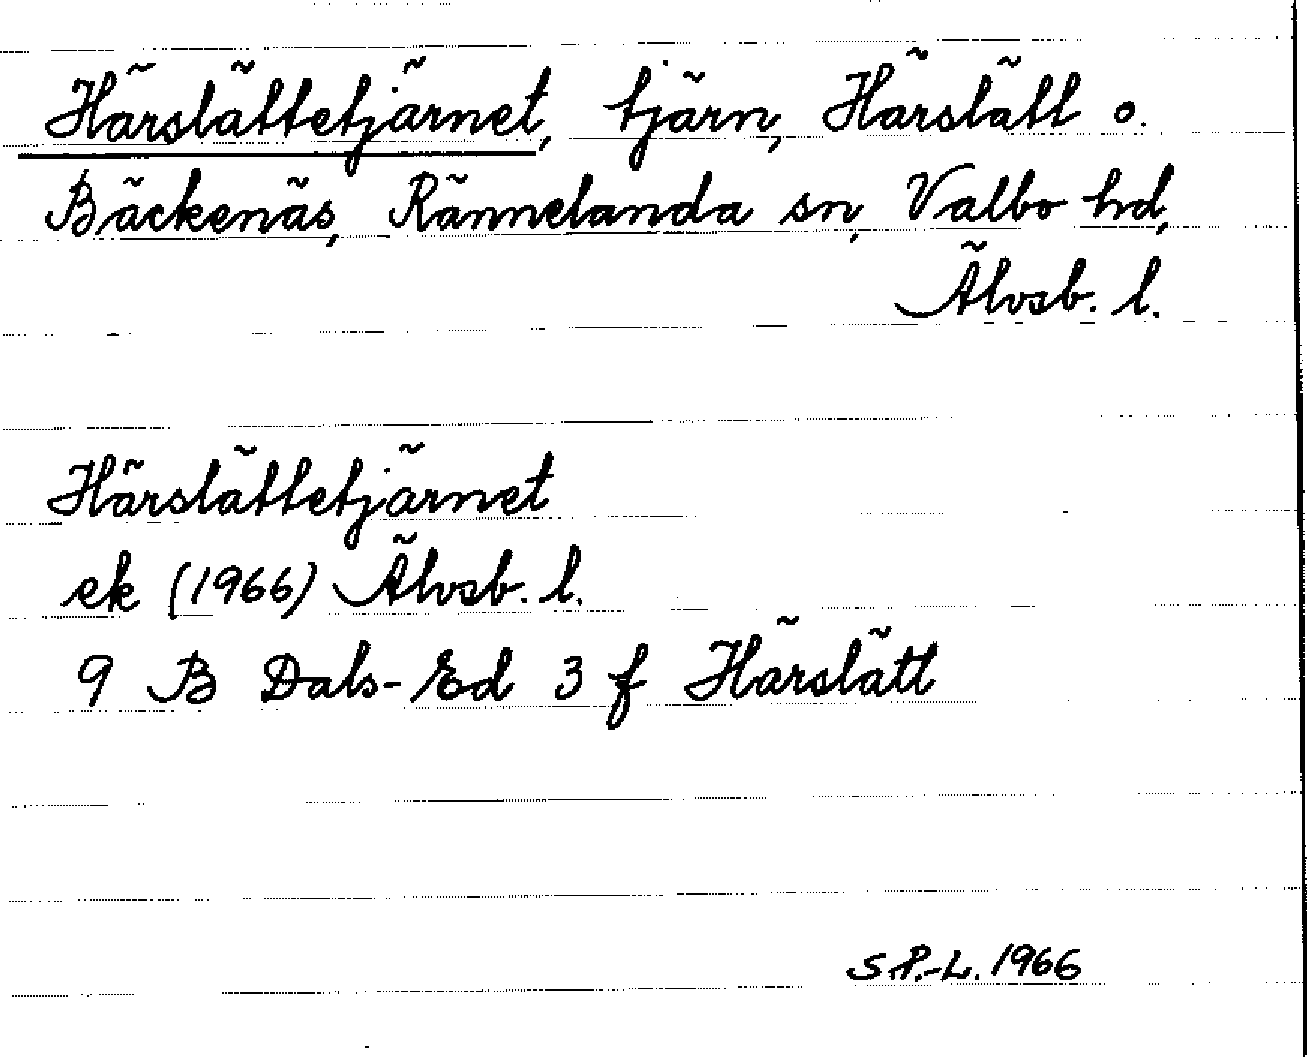 Härslättetjärnet, tjärn, Härslätt o.
Bäckenäs, Rännelanda sn, Valbo hd,
Älvsb. l.
Härslättetjärnet
ek (1966) Älvsb. l.
9 B Dals-Ed 3 f Härslätt
S P.-L. 1966